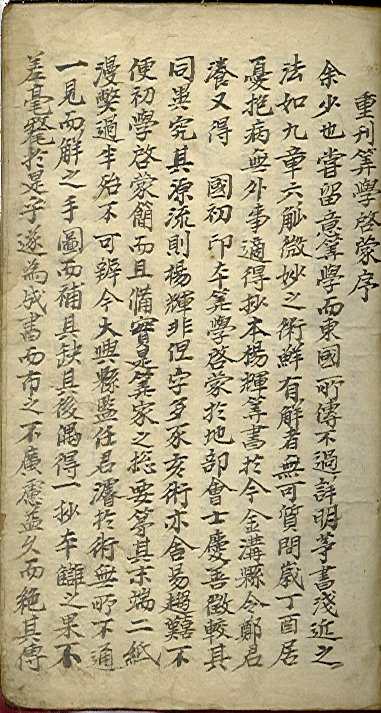 重刊筭學啓蒙序
余少也嘗留意筭學而東國所傳不過詳明等書淺近之
法如九章六觚微妙之術鮮有解者無可質問歲丁酉居
憂抱病無外事適得抄本楊輝筭書於今金溝縣令鄭君
瀁又得 國初印本筭學啓蒙於地部會士慶善徵較其
同異究其源流則楊輝非但字多豕亥術亦舍易趨難不
便初學啓蒙簡而且備實是筭家之総要第其末端二紙
漫弊過半殆不可辨今大興縣監任君濬於術無所不通
一見而解之手圖而補其缺且後偶得一抄本讎之果不
差毫釐於是乎遂為成書而市之不廣慮益久而絶其傳